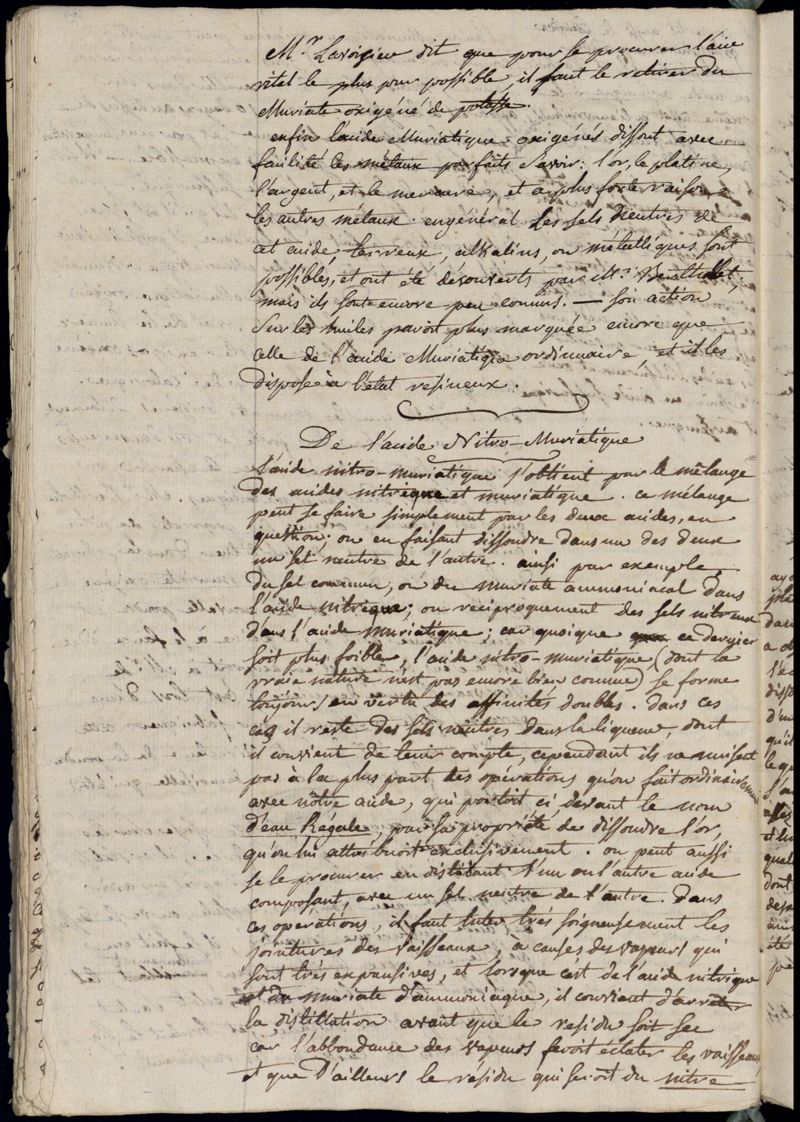 Mr. Lavoisier dit que pour se procurer l'air
vital le plus pur possible, il faut le retirer du
Muriate oxigéné de potasse.
enfin l'acide Muriatique oxigénés dissout avec
facilité les métaux parfaits Savoir: l'or, le platine,
l'argent, et le mercure, et a plus forte raison
les autres métaux. en général les sels neutres de
cet acide, terreux, alkalins, ou métalliques sont
possibles, et ont été découverts par Mr. Berthollet,
mais ils sont encore peu connus. — Son action
Sur les huiles paroit plus marquée encore que
celle de l'acide Muriatique ordinnaire, et il les
dispose à l'état resineux.
De l'acide Nitro-Muriatique
L'acide nitro-muriatique s'obtient par le mélange
des acides nitrique et muriatique. ce mélange
peut se faire simplement par les deux acides, en
question; ou en faisant dissoudre dans un des deux
un sel neutre de l'autre. ainsi par exemple,
du sel commun, ou du muriate ammoniacal dans
l'acide nitrique; ou réciproquement des sels nitreux
dans l'acide muriatique; car quoique ce dernier
soit plus foible, l'acide nitro-muriatique (dont la
vraie nature n'est pas encore bien connue) se forme
toujours en vertu des affinités doubles. Dans ces
cas il reste des sels neutres dans la liqueur, dont
il convient de tenir compte, cependant ils ne nuisent
pas à la plus part des opérations qu'on fait ordinairement
avec nôtre acide, qui portoit ci devant le nom
d'eau Régale, par sa propriété de dissoudre l'or,
qu'on lui attribuoit exclusivement. on peut aussi
se le procurer en distilant l'un ou l'autre acide
composant, avec un sel neutre de l'autre. Dans
ces opérations, il faut luter trés soigneusement les
jointures des vaisseaux, à causes des vapeurs qui
sont trés expansives, et lorsque c'est de l'acide nitrique
et du muriate d'ammoniaque, il convient d'arreter
la distillation avant que le residu soit sec
car l'abbondance des vapeurs feroit éclater les vaisseaux,
et que d'ailleurs le résidu qui seroit du nitre